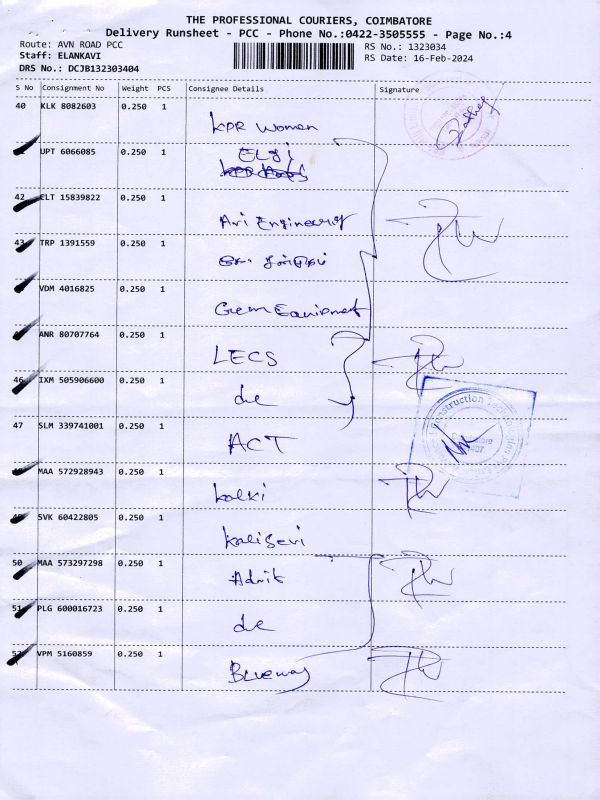 THE PROFESSIONAL COURIERS, COIMBATORE
Delivery Runsheet - PCC - Phone No.:0422-3505555 - Page No.:4
Route: AVN ROAD PCC
RS No.: 1323034
Staff: ELANKAVI
RS Date: 16-Feb-2024
DRS No.: DCJB132303404
S No Consignment No Weight PCS Consignee Details Signature
40 KLK 8082603 0.250 1
KPR Women
UPT 6066085 0.250 1
42 ELT 15839822 0.250 1
Ari Engineering
43 TRP 1391559 0.250 1
VDM 4016825 0.250 1
Gem Equipment
ANR 80707764 0.250 1
LECS
46 IXM 505906600 0.250 1
do
47 SLM 339741001 0.250 1
ACT
Construction
MAA 572928943 0.250 1
kalki
SVK 60422805 0.250 1
50 MAA 573297298 0.250 1
51 PLG 600016723 0.250 1
do
52 VPM 5160859 0.250 1
Blueway